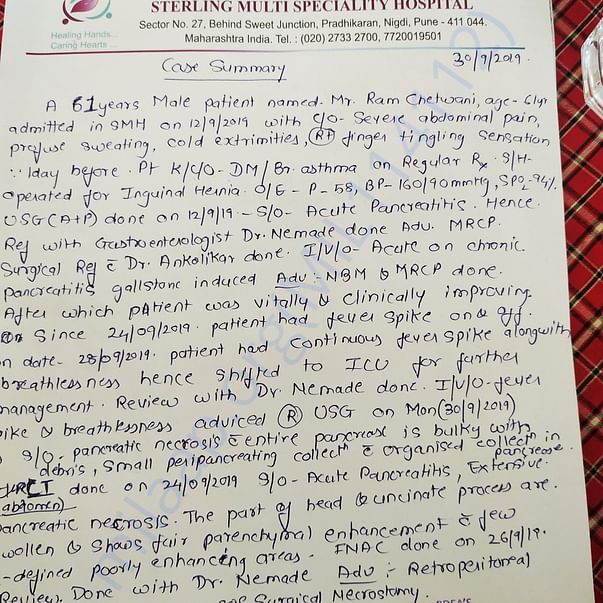 STERLING MULTI SPECIALITY HOSPITAL
Sector No. 27, Behind Sweet Junction, Pradhikaran, Nigdi, Pune - 411 044.
Healing Hands...
Maharashtra India. Tel. : (020) 2733 2700, 7720019501
Caring Hearts ...
Case Summary
30/9/2019.
A 61years Male patient named- Mr. Ram Chetwani, age- 61yr
admitted in SMH on 12/9/2019 with C/O- Severe abdominal pain,
profuse sweating, cold extrimities, (Rt) finger tingling sensation
∵ 1day before. Pt K/C/O- DM/Br. asthma on Regular Rx. S/H-
operated for Inguind Heinia. O/E - P- 58, BP- 160/90mmHg, SPO2-94%.
USG (A+P) done on 12/9/19.- S/O- Acute Pancreatitis. Hence.
Ref with Gastroenterologist Dr. Nemade done Adv. MRCP.
Surgical Ref c̄ Dr. Ankolikar done. I/V/O- Acute on chronic.
pancreatitis gallstone induced Adv:- NBM & MRCP done.
After which patient was vitally & clinically improving.
Since 24/09/2019. patient had fever spike on & off.
on date- 28/09/2019. patient had continuous fever spike alongwith
breathlessness hence shifted to ICU for further
management. Review with Dr. Nemade done. I/V/O-fever
spike & breathlessness adviced (R) USG on Mon(30/9/2019)
S/O- pancreatic necrosis c̄ entire pancreas is bulky with
debris, small peripancreating collectⁿ c̄ organised collectⁿ in
pancrease.
done on 24/09/2019 S/O- Acute Pancreatitis, Extensive.
abdomen)
pancreatic necrosis. The part of head & uncinate process are.
swollen & shows fair parenchymal enhancement c̄ few
-defined poorly enhancing areas. FNAC done on 26/9/19.
Review. Done with Dr. Nemade Adv:- Retroperitoneal
Surgical Necrostomy.
milaap.org